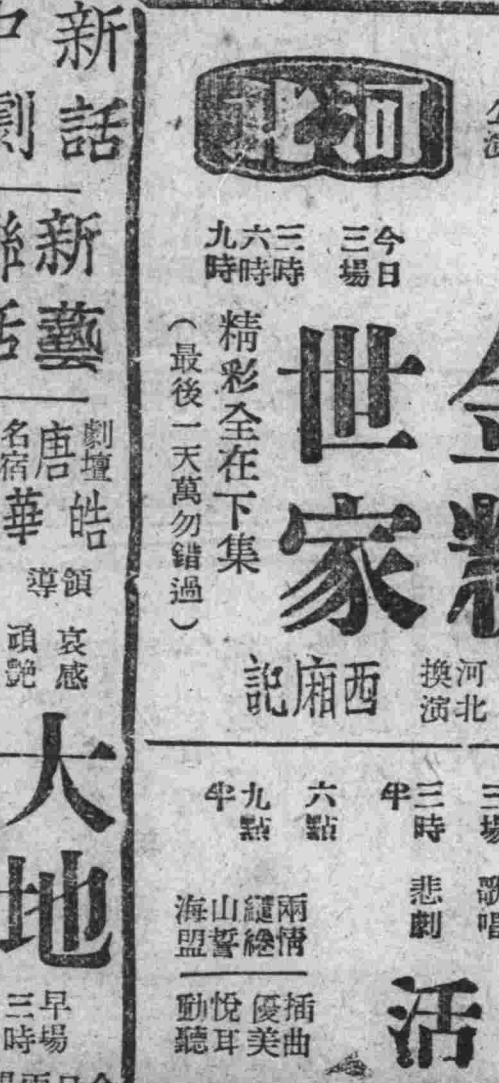 河北
今日
三場
三時
六時
九時
金粉
世家
精彩全在下集
（最後一天萬勿錯過）
河北
換演
西廂記
三場
三時半
六點
九點半
歌唱
悲劇
兩情
繾綣
山誓
海盟
插曲
優美
悅耳
動聽
活
新話
劇
新藝
聯
話
劇壇
名宿
唐
皓
華
領導
哀感
頑艷
大地
早場
三時